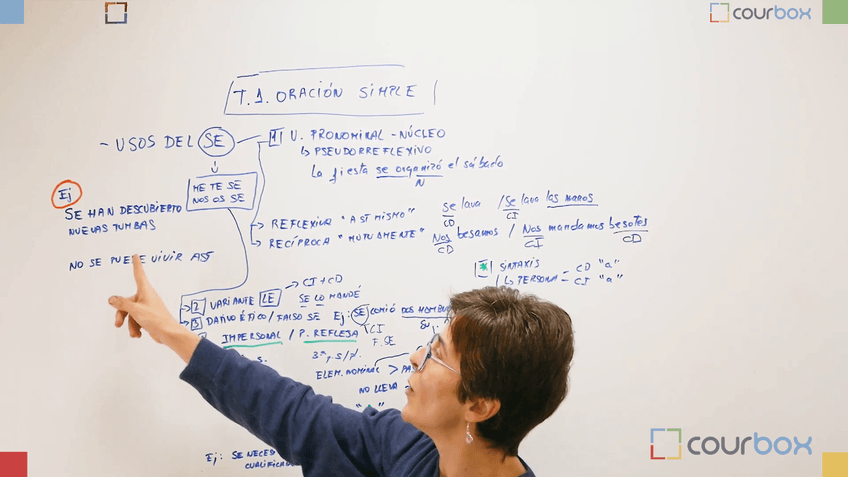 courbox
T.1. ORACIÓN SIMPLE
- USOS DEL SE
1 V. PRONOMINAL - NÚCLEO
↳ PSEUDORREFLEXIVO
La fiesta se organizó el sábado
N
ME TE SE
NOS OS SE
Ej
SE HAN DESCUBIERTO
NUEVAS TUMBAS
NO SE PUEDE VIVIR ASÍ
→ REFLEXIVA "A SÍ MISMO"
Se lava / Se lava las manos
CD CI
→ RECÍPROCA "MUTUAMENTE"
Nos besamos / Nos mandamos besotes
CD CI CD
* SINTAXIS
↳ PERSONA = CD "a"
CI "a"
2 VARIANTE LE → CI + CD
SE LO MANDÉ
3 DATIVO ÉTICO / FALSO SE Ej: SE COMIÓ DOS
CI
F. SE
IMPERSONAL / P. REFLEJA
3ª p. S/pl.
ELEM. NOMINAL >
NO LLEVA
Ej: SE
courbox